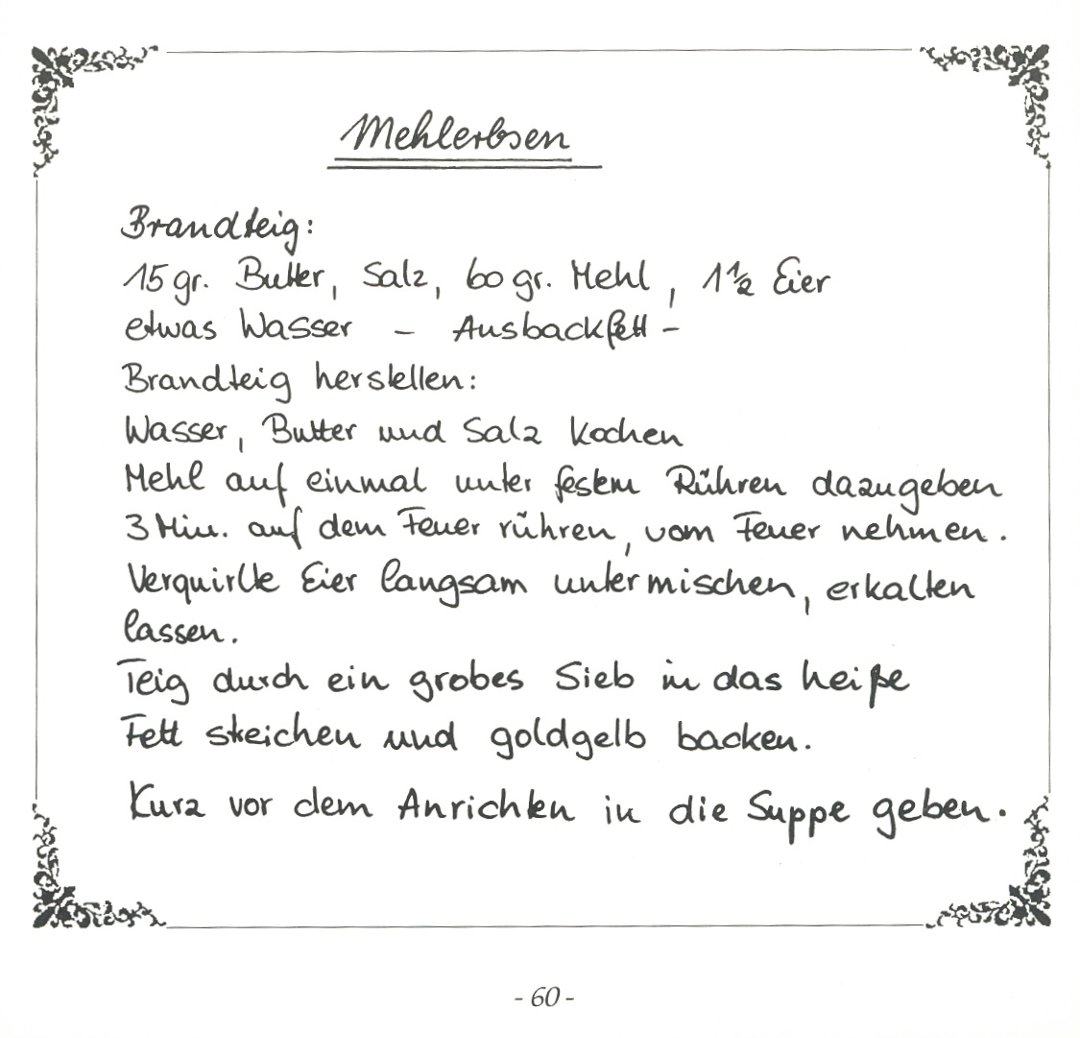 Mehlerbsen
Brandteig:
15 gr. Butter, Salz, 60 gr. Mehl, 1 1/2 Eier
etwas Wasser – Ausbackfett –
Brandteig herstellen:
Wasser, Butter und Salz kochen
Mehl auf einmal unter festem Rühren dazugeben
3 Min. auf dem Feuer rühren, vom Feuer nehmen.
Verquirlte Eier langsam untermischen, erkalten
lassen.
Teig durch ein grobes Sieb in das heiße
Fett streichen und goldgelb backen.
Kurz vor dem Anrichten in die Suppe geben.
- 60 -